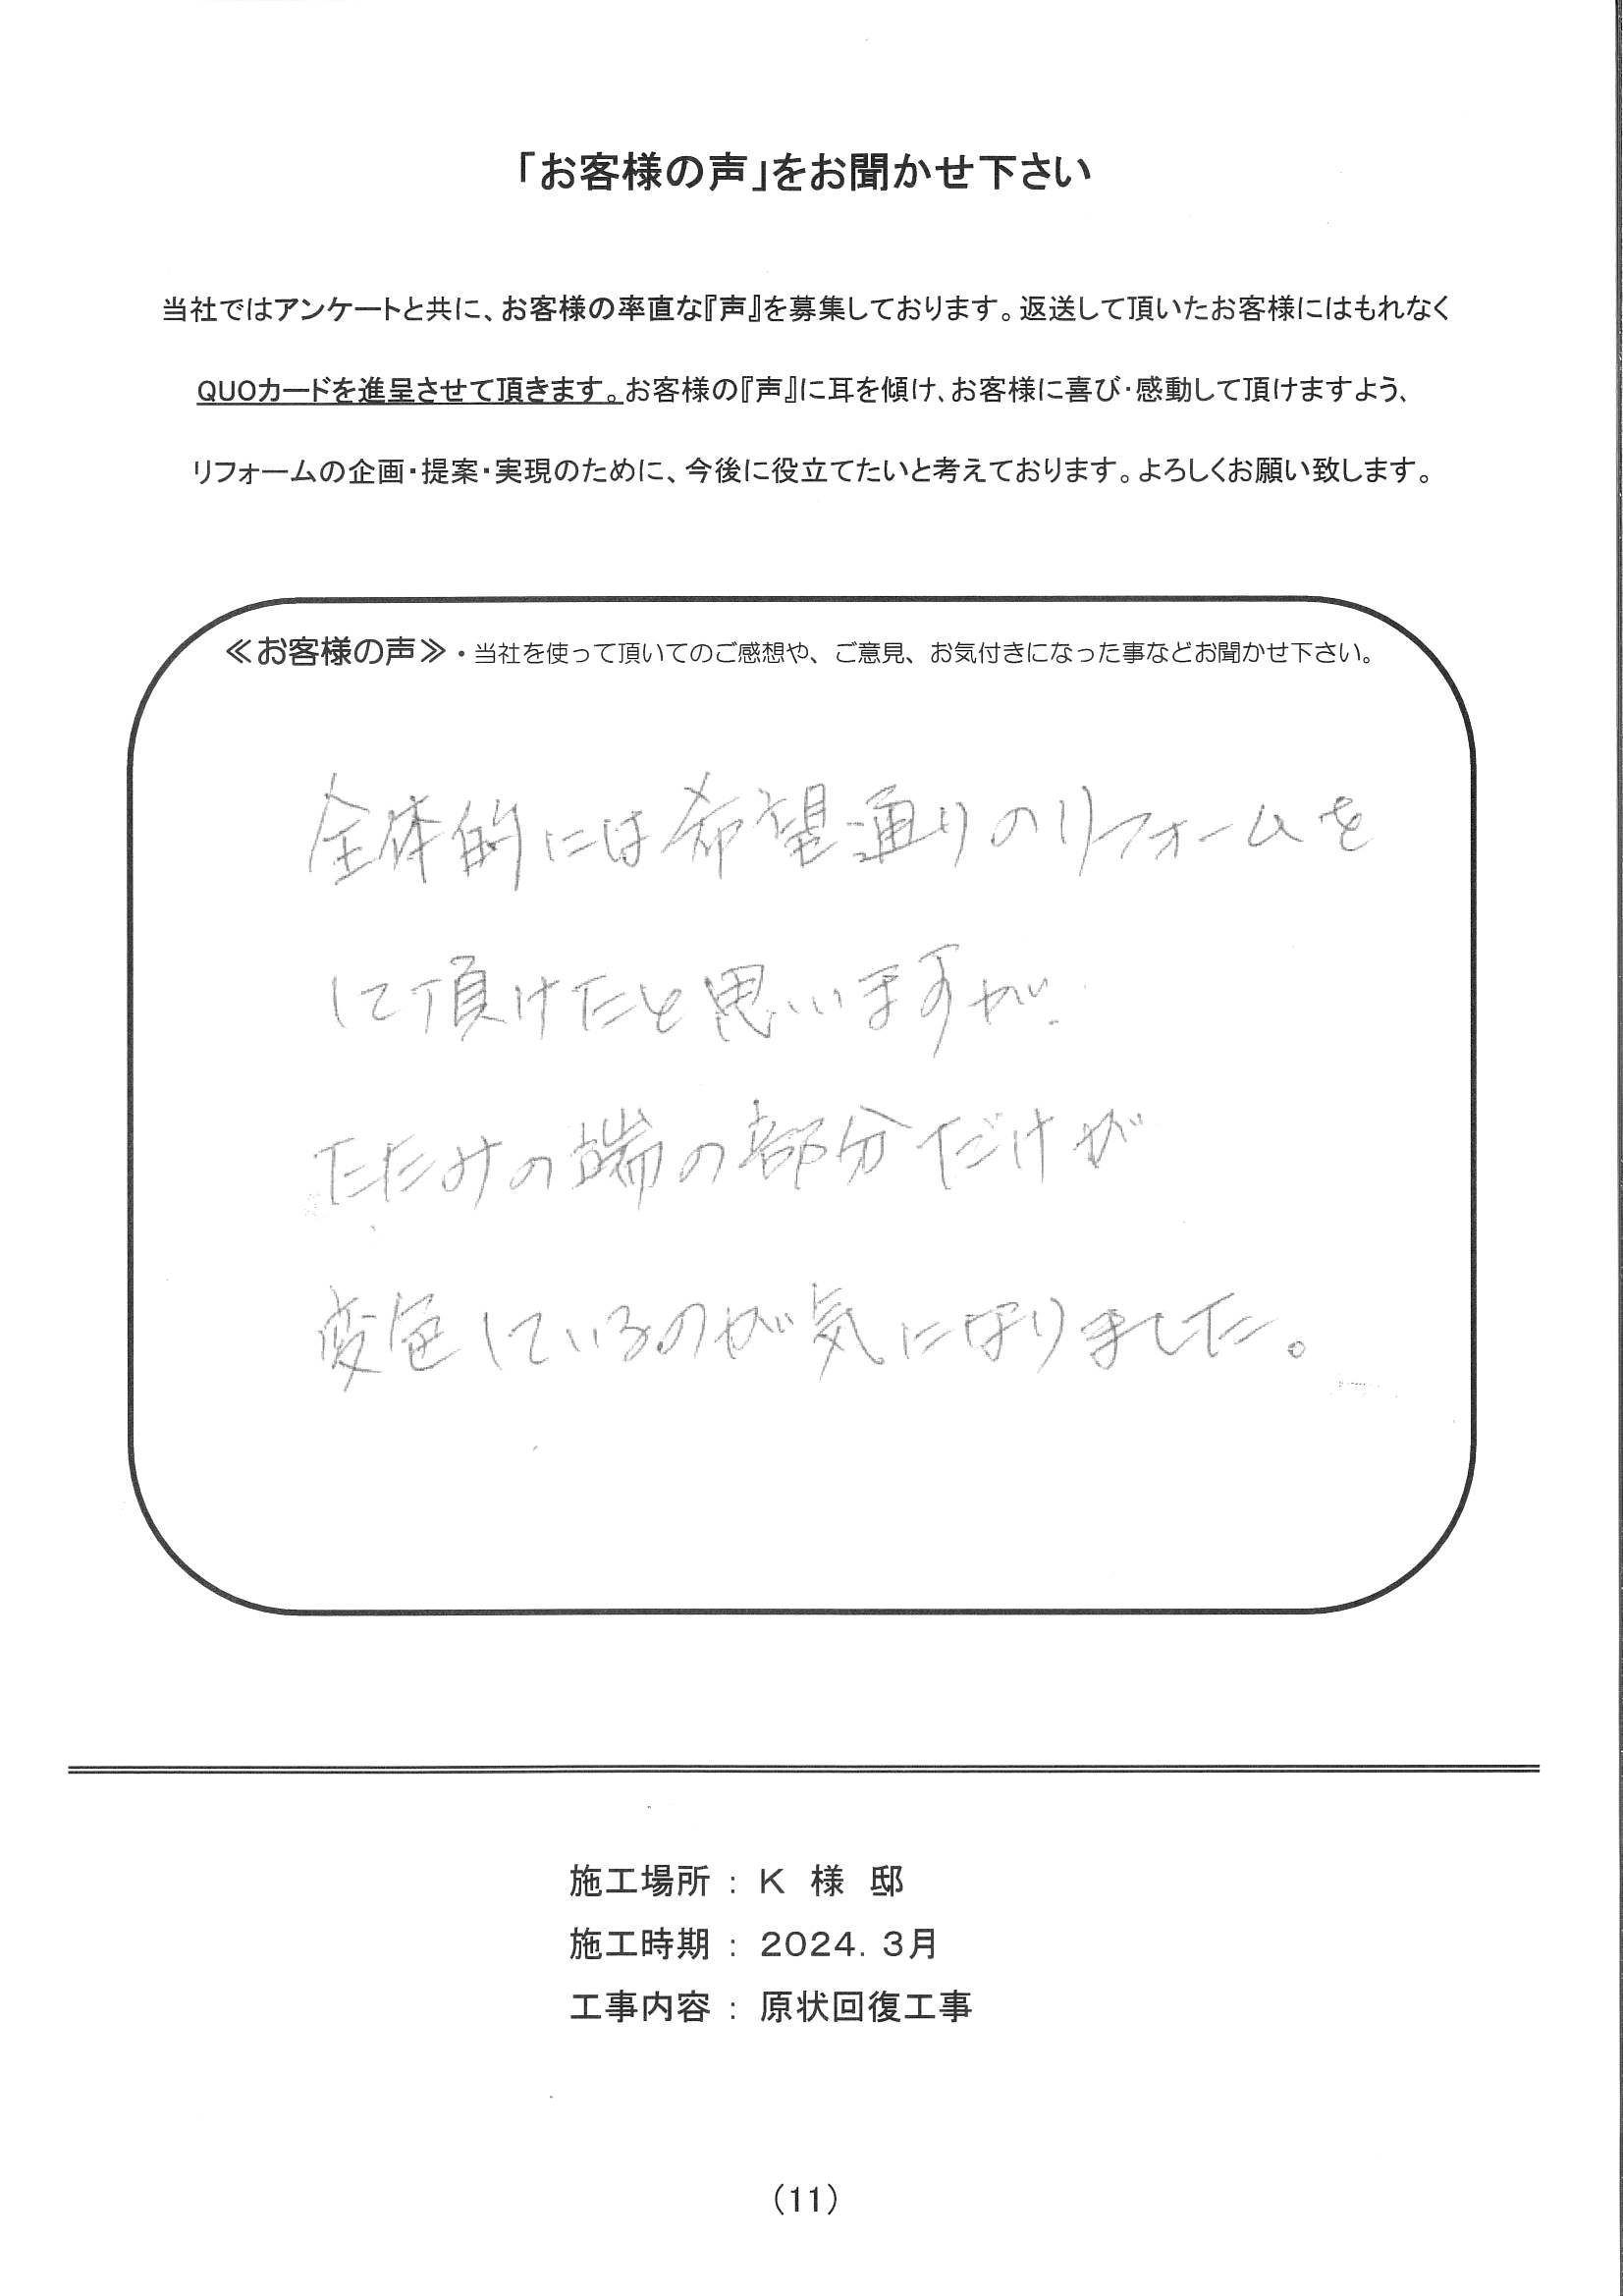 「お客様の声」をお聞かせ下さい
当社ではアンケートと共に、お客様の率直な『声』を募集しております。返送して頂いたお客様にはもれなく
QUOカードを進呈させて頂きます。お客様の『声』に耳を傾け、お客様に喜び・感動して頂けますよう、
リフォームの企画・提案・実現のために、今後に役立てたいと考えております。よろしくお願い致します。
≪お客様の声≫・当社を使って頂いてのご感想や、ご意見、お気付きになった事などお聞かせ下さい。
全体的には希望通りのリフォームを
して頂けたと思いますが、
たたみの端の部分だけが
変色しているのが気になりました。
施工場所 : K 様 邸
施工時期 : 2024. 3月
工事内容 : 原状回復工事
(11)